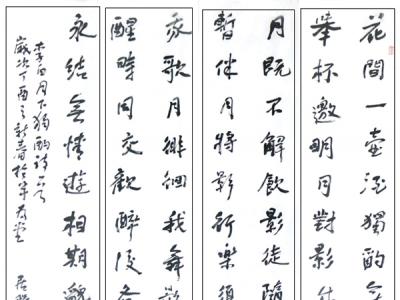 花間一壺酒獨酌
舉杯邀明月對影成
月既不解飲影徒隨
暫伴月將影行樂須
我歌月徘徊我舞影
醒時同交歡醉後各
永結無情遊相期邈
李白月下獨酌詩一首
歲次丁酉之新春於